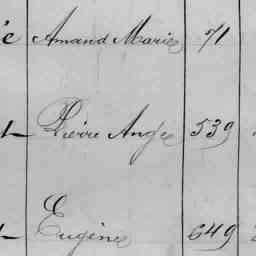 é Amand Marie 71
Pierre Ange 539
Eugène 649